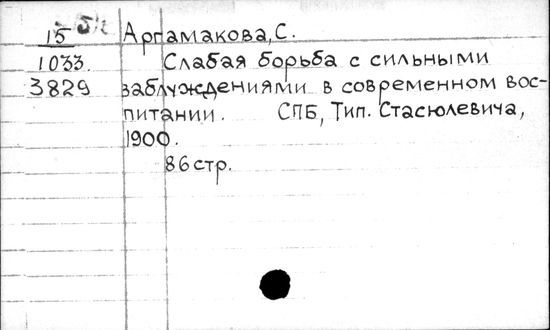 15
Аргамакова, С.
1033.
Слабая борьба с сильными
3829
заблуждениями в современном вос-
питании. СПБ, Тип. Стасюлевича,
1900.
86 стр.